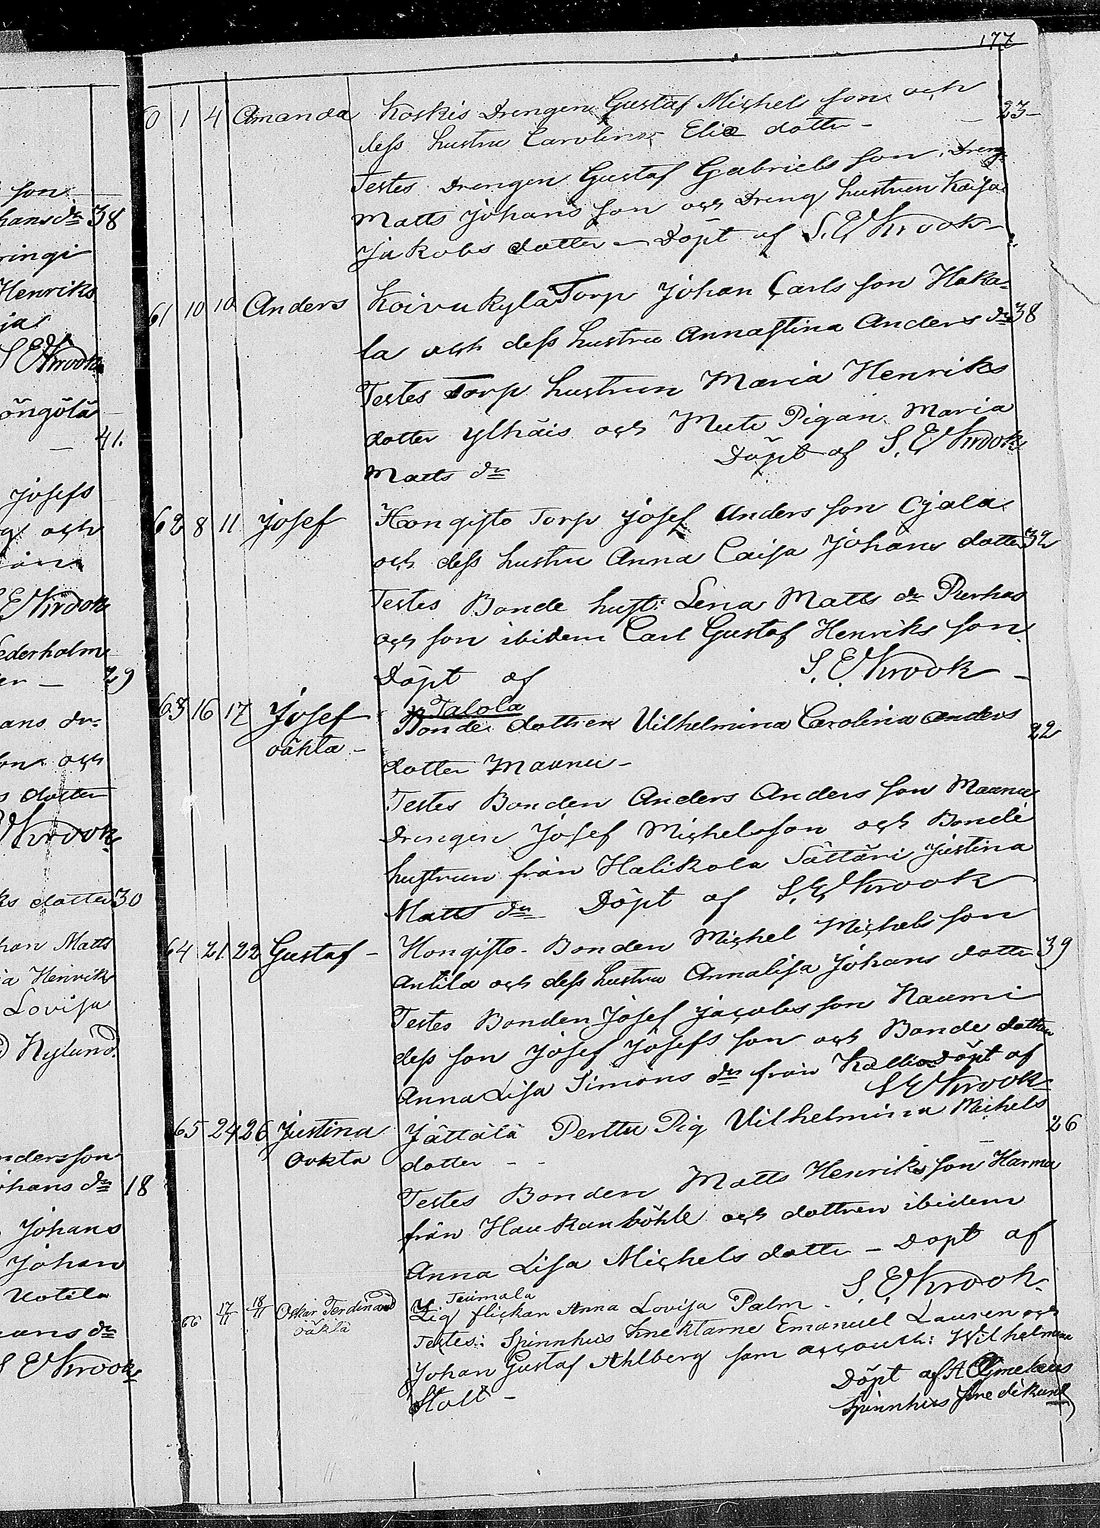 177
son
hans dr 38
ringi
Henriks
ja
S E Krook
öngölä
41.
Josefs
och
S E Krook
ederholm
29
ans dr
on och
s dotter
Krook
ks dotter 30
han Matts
ia Henriks
Lovisa
Nylund
ndersson
ohans dr 18
Johans
Johan
Uotila
ans dr
S E Krook
0 1 4 Amanda Koskis Drengen Gustaf Michel son och 23
dess hustru Carolina Elia dotter –
Testes Drengen Gustaf Gabriels son, Dreng
Matts Johans son och Dreng hustrun Kajsa
Jakobs dotter – Döpt af S. E Krook –
61 10 10 Anders Koivukylä Torp Johan Carls son Haka-
la och dess hustru Annastina Anders dr 38
Testes Torp hustrun Maria Henriks
dotter Ylhäis och Pigan Maria
Matts dr Döpt af S. E Krook
62 8 11 Josef Hongisto Torp Josef Anders son Ojala
och dess hustru Anna Caisa Johans dotter 32
Testes Bonde hust: Lena Matts dr Pierhas
och son ibidem Carl Gustaf Henriks son
Döpt af S. E Krook –
Talola
63 16 17 Josef Bonde dottren Vilhelmina Carolina Anders 22
oäkta – dotter Maunu –
Testes Bonden Anders Anders son Maunu
Drengen Josef Michelsson och Bonde
hustrun från Halikola Sättäri Justina
Matts dr Döpt af S. E Krook
64 21 22 Gustaf – Hongisto Bonden Michel Michels son
Antila och dess hustru Annalisa Johans dotter 39
Testes Bonden Josef Jacobs son Naumi
dess son Josef Josefs son och Bonde dotter
Anna Lisa Simons dr från Kallio Döpt af
S E Krook
65 24 26 Justina Jättälä Perttu Pig Vilhelmina Michels 26
oäkta dotter – –
Testes Bonden Matts Henriks son Harma
från Haukanböhle och dottren ibidem
Anna Lisa Michels dotter – Döpt af
S. E Krook
Teumala
66 17/11 18/11 Oskar Ferdinand flickan Anna Lovisa Palm –
oäkta Testes: Spinnhus knektarne Emanuel Lauren och
Johan Gustaf Ahlberg sam accouth: Wilhelmina
Stolt – Döpt af A
Spinnhus